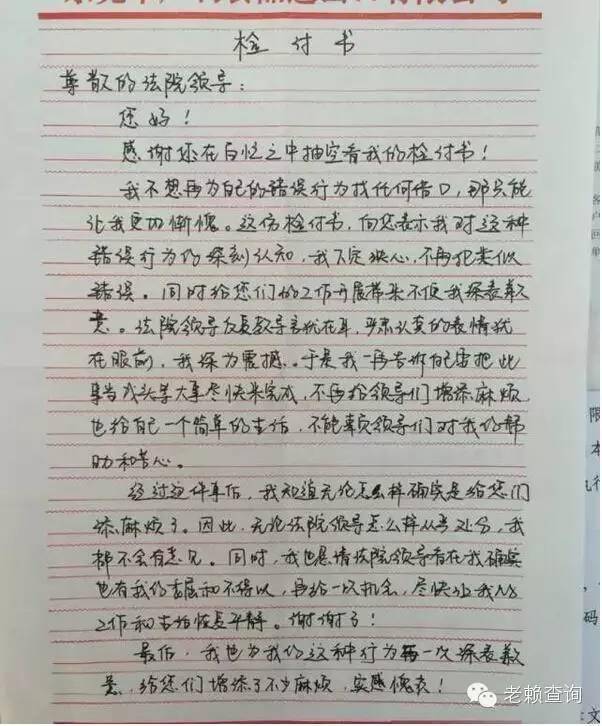 检付书
尊敬的法院领导：
您好！
感谢您在百忙之中抽空看我的检付书！
我不想再为自己的错误行为找任何借口，那只能
让我更加惭愧。这份检付书，向您表示我对这种
错误行为的深刻认知，我下定决心，不再犯类似
错误。同时给您们的工作开展带来不便我深表歉
意。法院领导反复教导言犹在耳，严肃认真的表情犹
在眼前，我深为震撼。于是我一再告诉自己要把此
事当成头等大事尽快来完成，不再给领导们增添麻烦
也给自己一个简单的生活，不能辜负领导们对我的帮
助和苦心。
经过这件事后，我知道无论怎么样确实是给您们
添麻烦了。因此，无论法院领导怎么样从当处分，我
都不会有意见。同时，我也恳请法院领导看在我确实
也有我的委屈和不得以，再给一次机会，尽快让我从
工作和生活恢复平静。谢谢了！
最后，我也为我的这种行为再一次深表歉
意，给您们增添了不少麻烦，实感愧表！
老赖查询